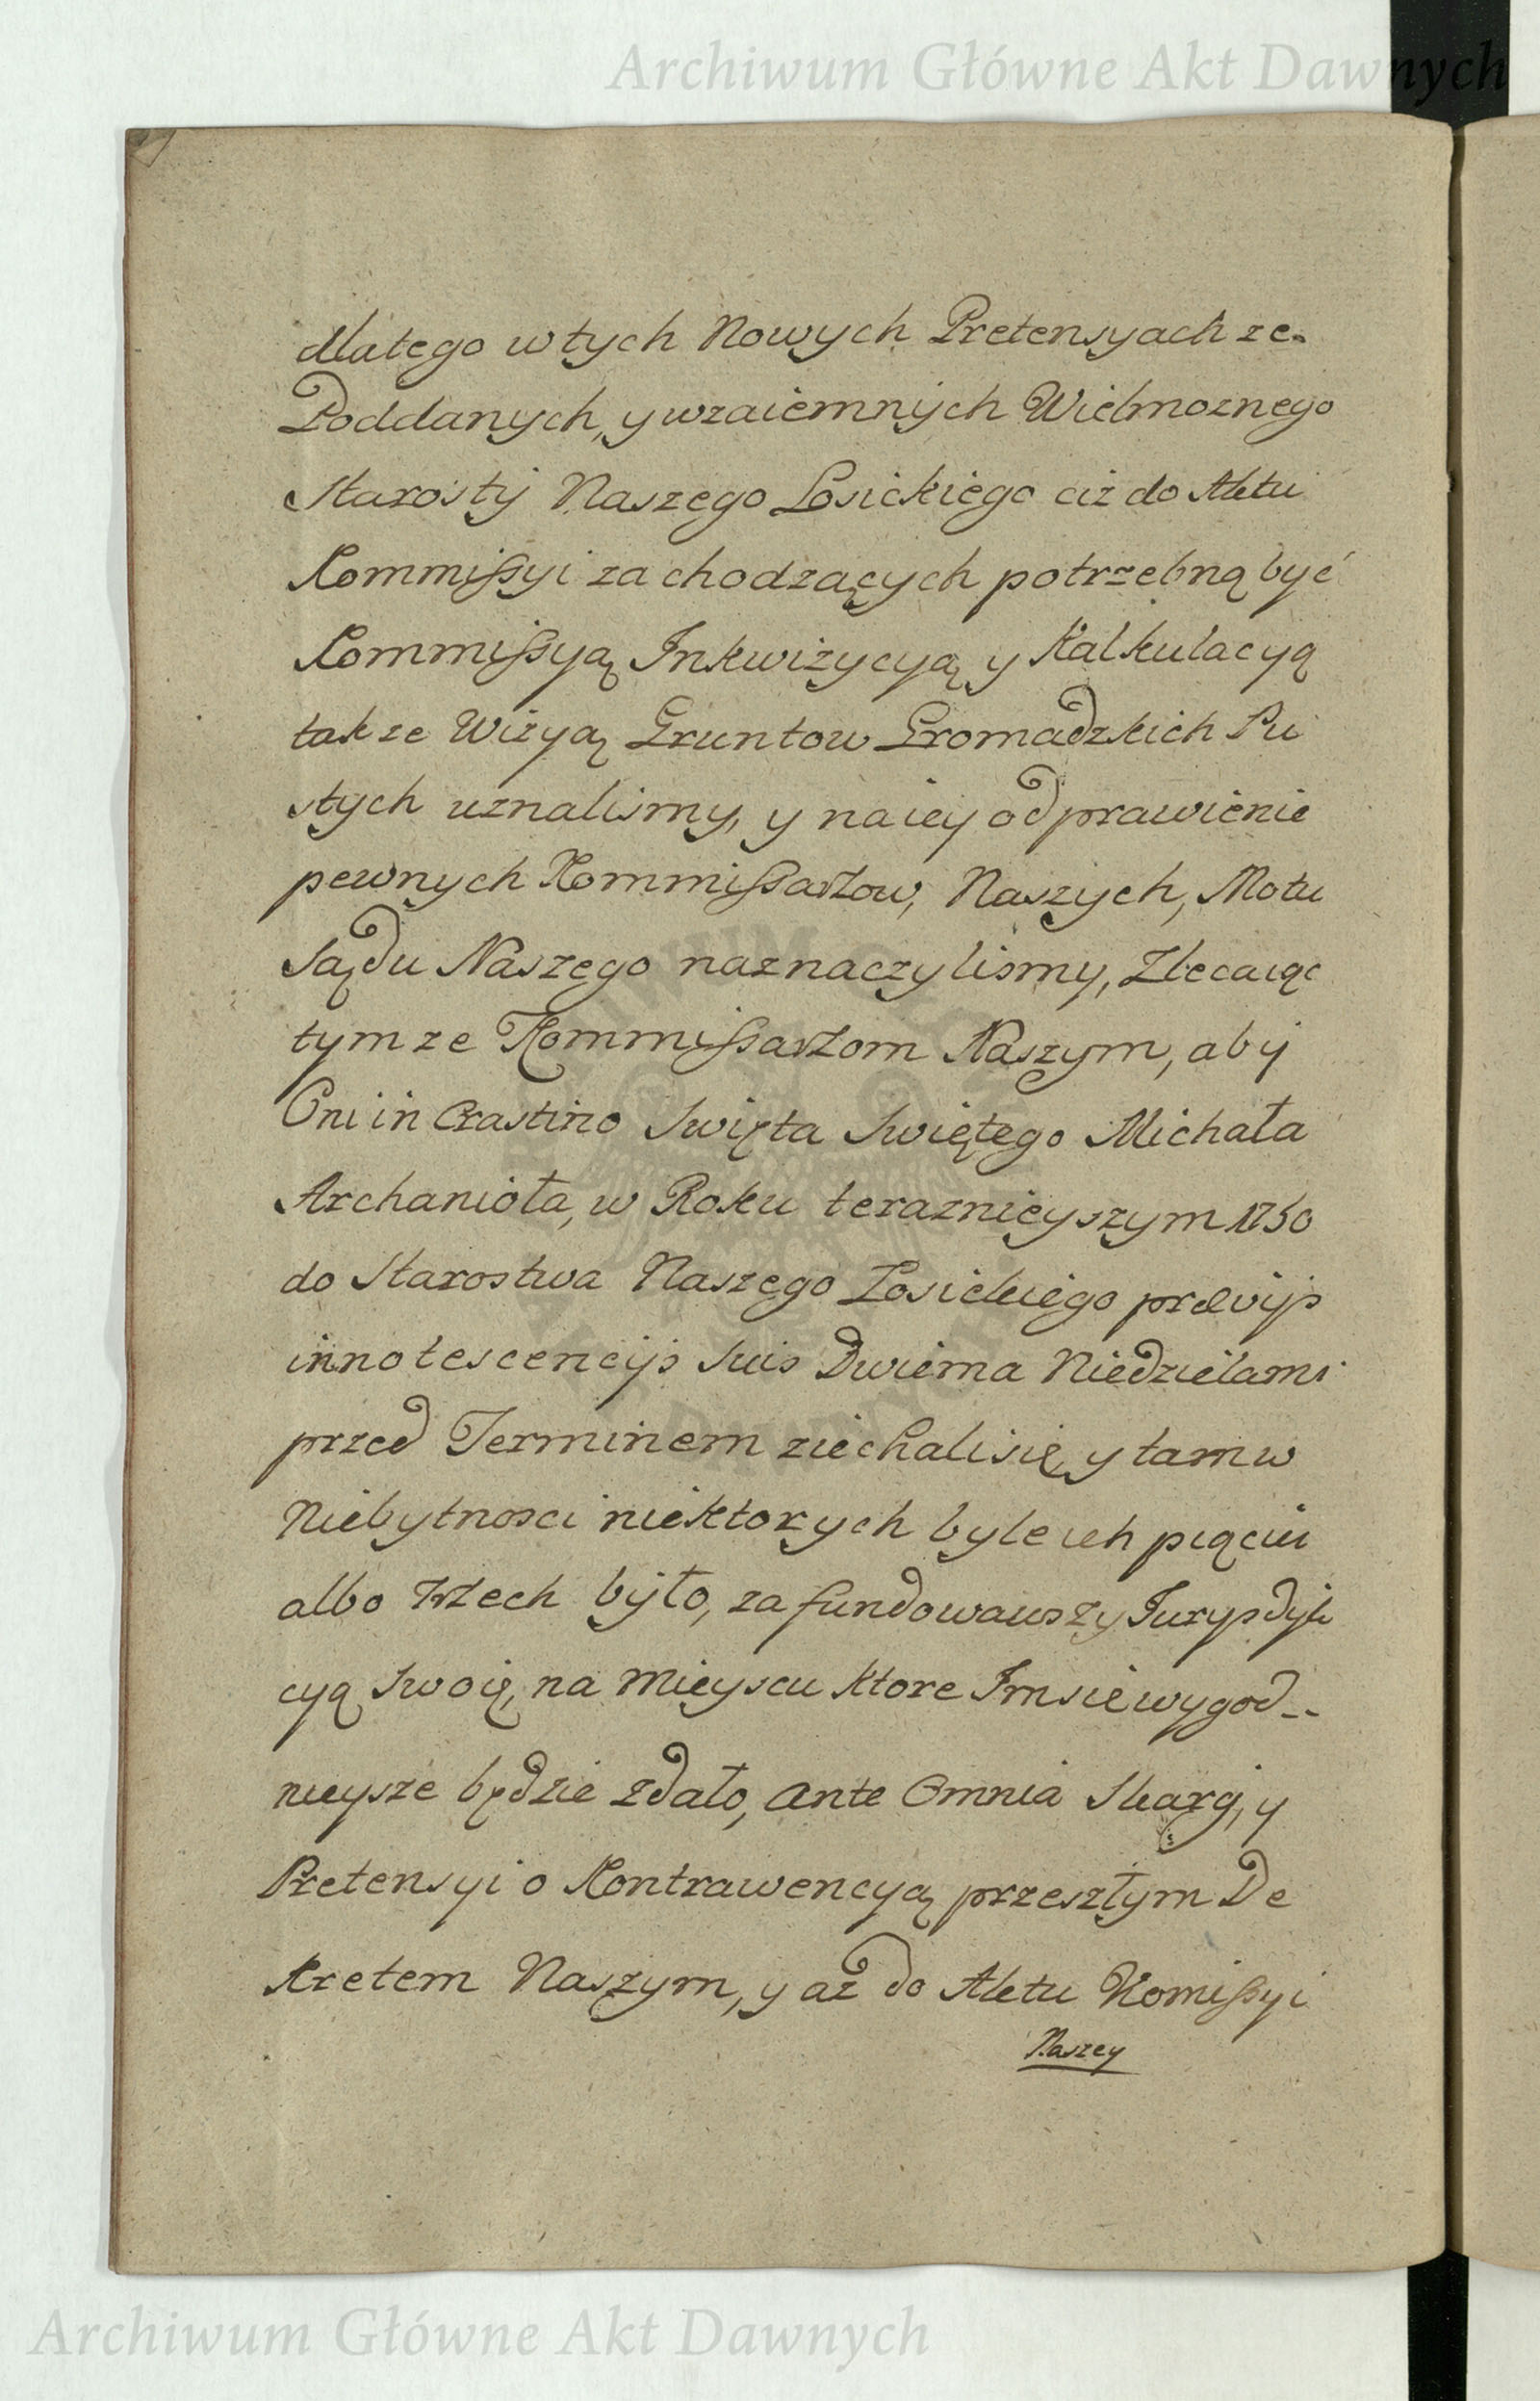 Archiwum Główne Akt Dawnych
dlatego w tych Nowych Pretensyach ze
Poddanych, y wzaiemnych Wielmoznego
Starosty Naszego Łosickiego aż do Aktu
Kommissyi zachodzących potrzebną być
Kommissyą Inkwizycyą y Kalkulacyą
takze Wizyą Gruntow Gromadzkich Pu
stych uznalismy, y na iey odprawienie
pewnych Kommissarzow, Naszych, Motu
Sądu Naszego naznaczylismy, Zlecaiąc
tymze Kommissarzom Naszym, aby
Oni in Crastino Swięta Swiętego Michała
Archanioła, w Roku teraznieyszym 1750
do Starostwa Naszego Łosickiego prævijs
innotescencijs suis Dwiema Niedzielami
przed Terminem ziechali się, y tam w
Niebytnosci niektorych byle ich pięciu
albo trzech było, zafundowawszy Jurysdyk
cyą swoię, na mieyscu ktore Im sie wygod--
nieysze będzie zdało, ante Omnia Skargi, y
Pretensyi o Kontrawencyą przeszłym De
kretem Naszym, y aż do Aktu Komissyi
Naszey
Archiwum Główne Akt Dawnych